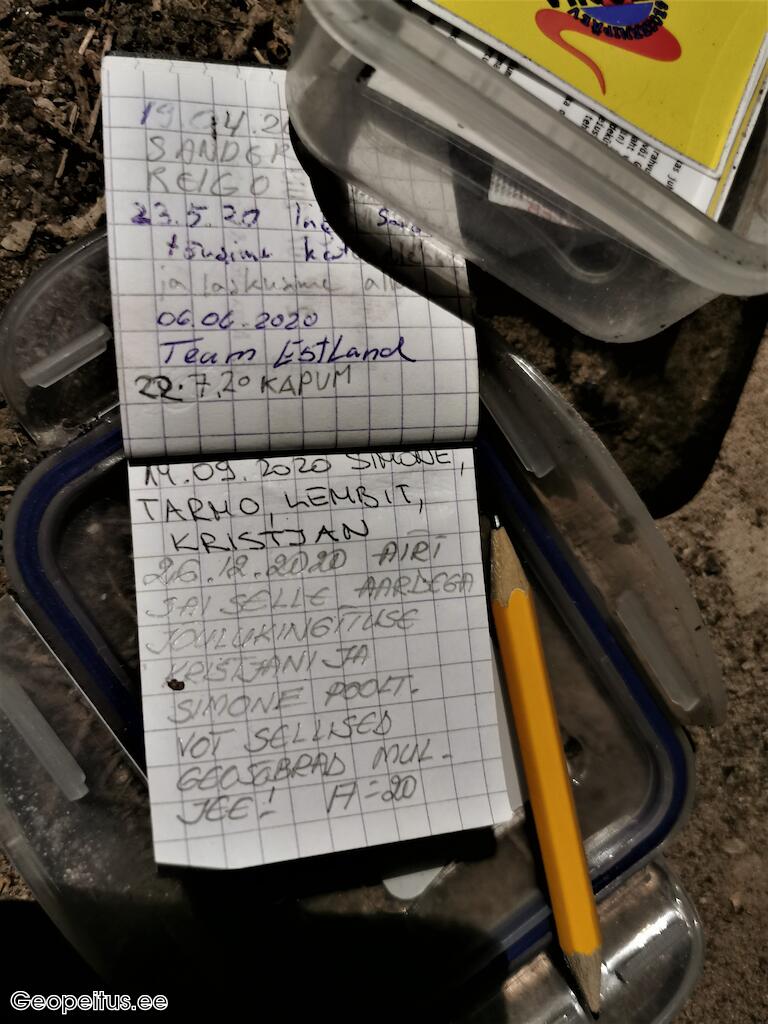 19.04.2
SANDER
REIGO
23.5.20
tõusime
ja laskusime
06.06.2020
Team EstLand
22.7.20 KAPUM
14.09.2020 SIMONE,
TARMO, LEMBIT,
KRISTJAN
26.12.2020 AIRI
SAI SELLE AARDEGA
JÕULUKINGITUSE
KRISTJANI JA
SIMONE POOLT.
VOT SELLISED
GEOSÕBRAD MUL-
JEE! A=20
Geopeitus.ee